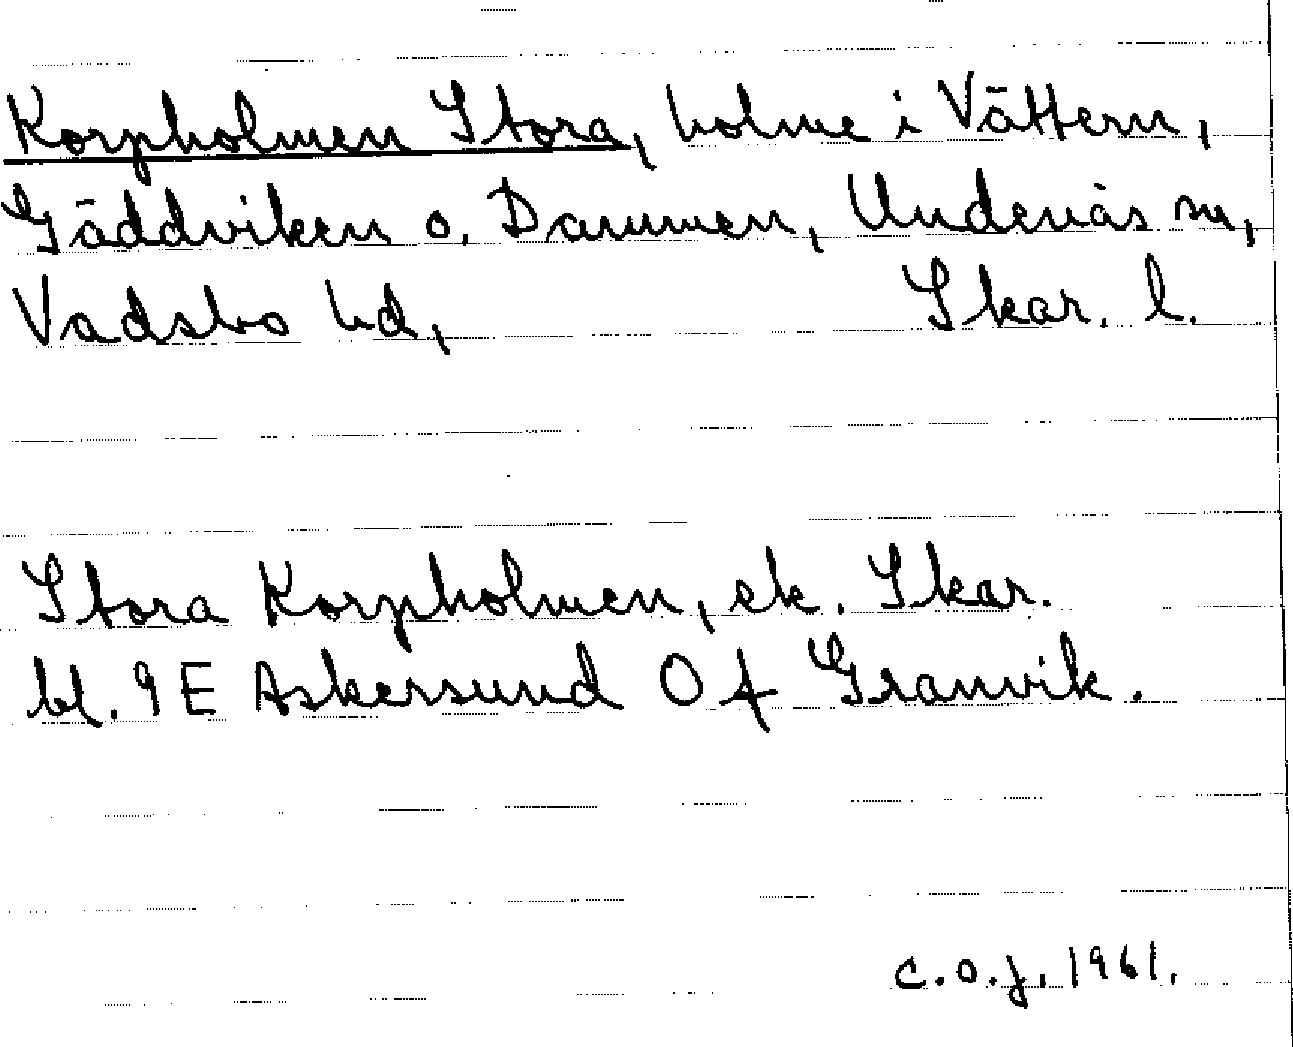 Korpholmen Stora, holme i Vättern,
Gäddviken o. Dammen, Undenäs sn,
Vadsbo hd, Skar. l.
Stora Korpholmen, ek. Skar.
bl. 9 E Askersund O f Granvik.
C.O.J. 1961.